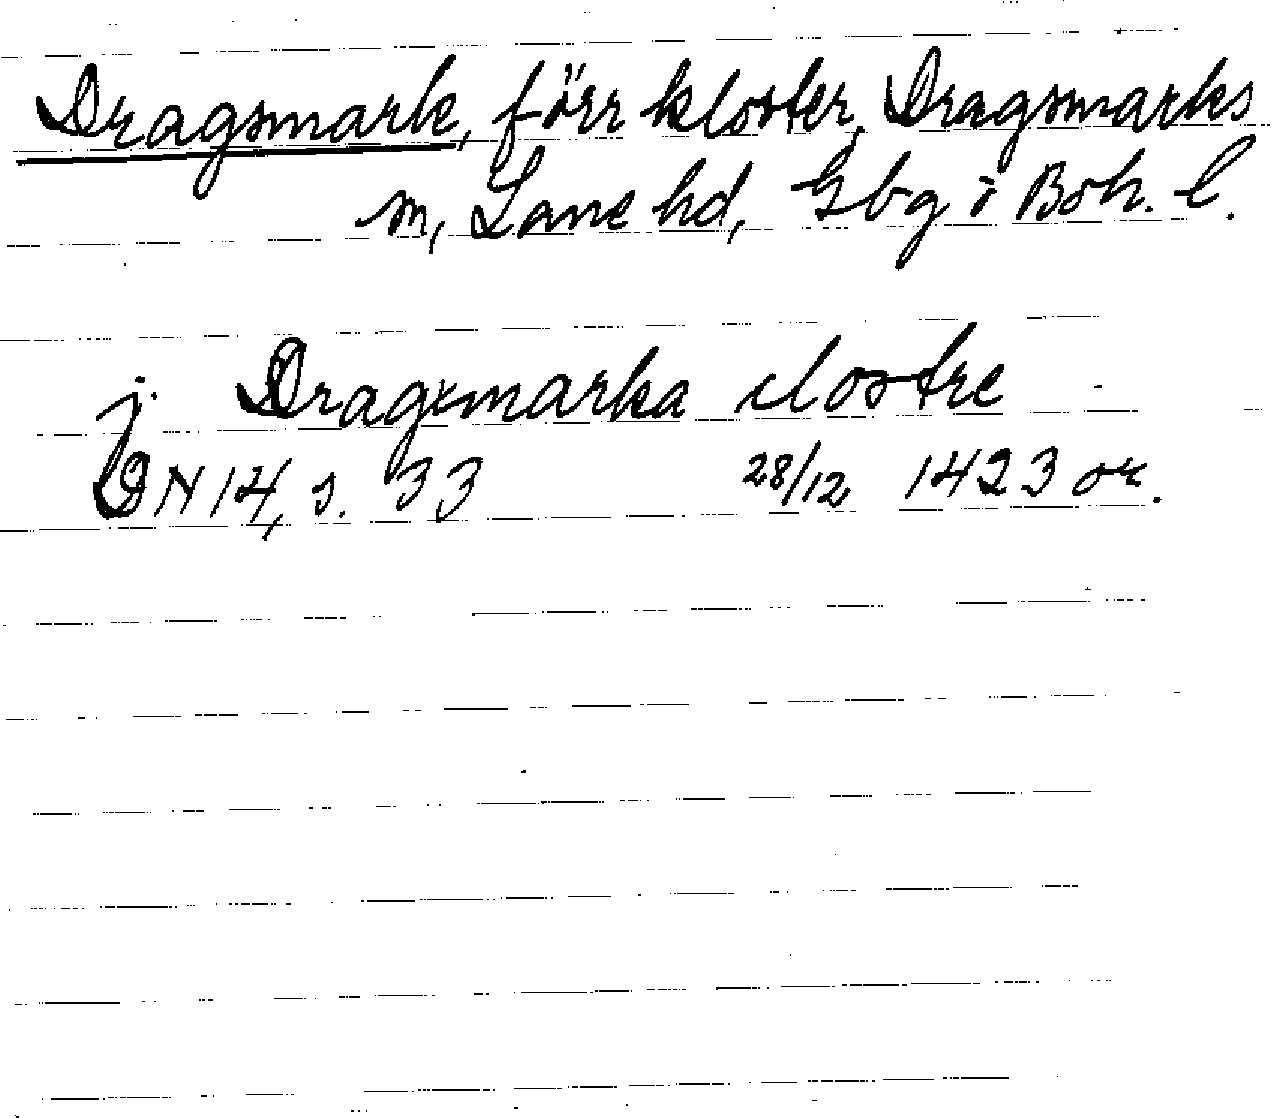 Dragsmark, förr kloster, Dragsmarks
sn, Lane hd, Gbg o Boh. l.
j Dragxmarka clostre
DN 14, s. 33 28/12 1423 or.